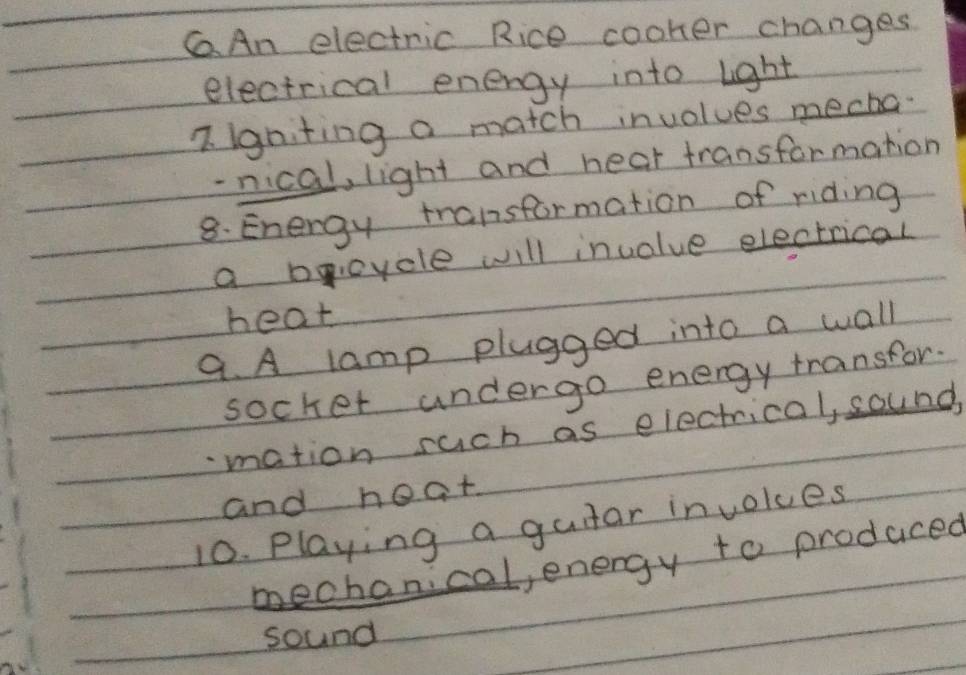 6. An electric Rice cooker changes
electrical energy into Light
7. Igniting a match involves mecha-
-nical, light and heat transformation
8. Energy transformation of riding
a bicycle will involve electrical
heat
9. A lamp plugged into a wall
socket undergo energy transfor-
-mation such as electrical, sound,
and heat
10. Playing a guitar involves
mechanical, energy to produced
sound